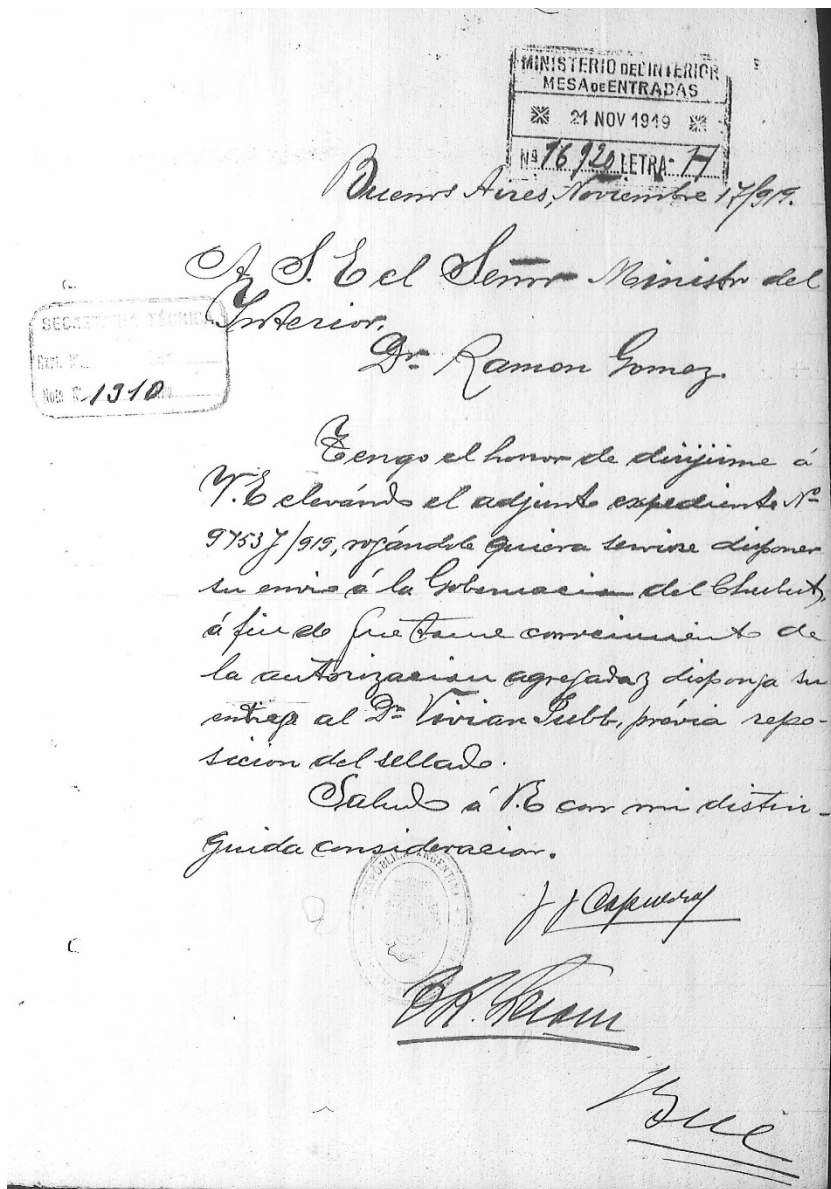 MINISTERIO DEL INTERIOR
MESA DE ENTRADAS
21 NOV 1919
Nº 16920 LETRA- H
Buenos Aires, Noviembre 17/919.
A S. E el Señor Ministro del
Interior.
SECRETARIA TÉCNICA
1310
Dr. Ramon Gomez.
Tengo el honor de dirijirme á
V. E elevándo el adjunto expediente Nº
9753 J/919, rogándole quiera servirse disponer
su envio á la Gobernacion del Chubut,
á fin de que tome conocimiento de
la autorizacion agregada y disponga su
entrega al Dr. Vivian Pubb, prévia repo-
sicion del sellado.
Saludo á V. E con mi distin-
guida consideracion.
REPÚBLICA ARGENTINA